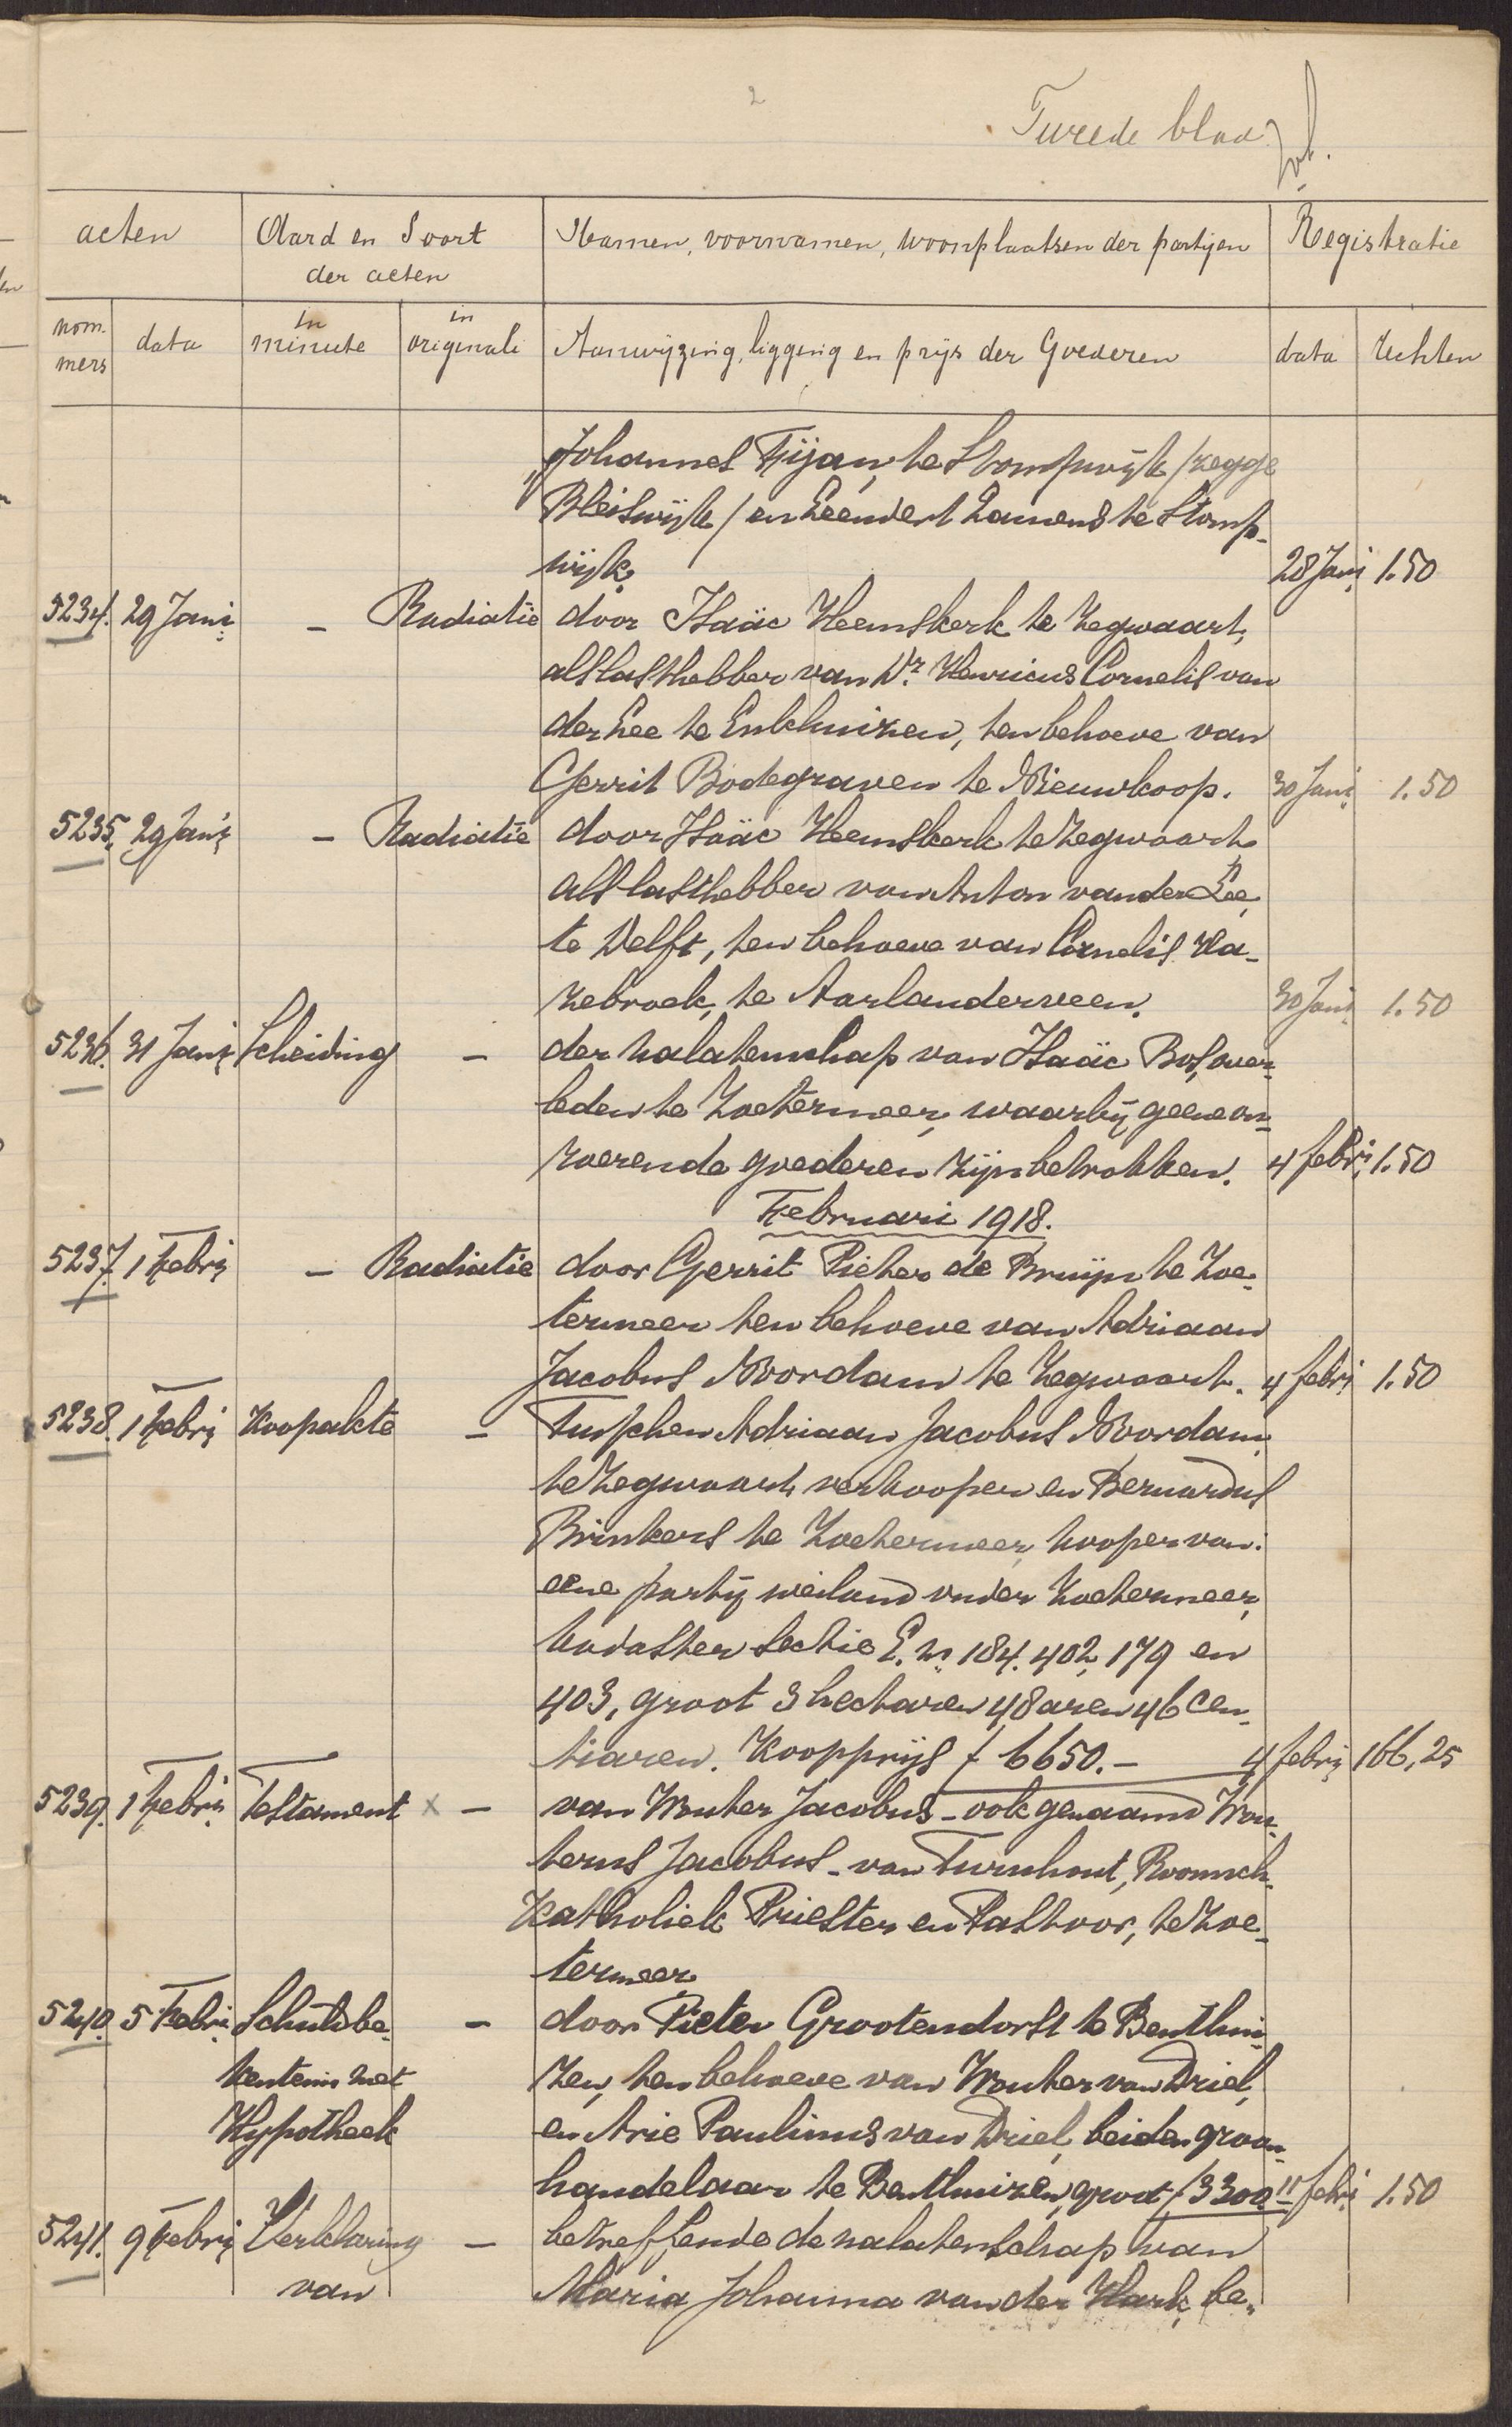 2
Twede blad
acten
Aard en Soort
der acten
Namen, voornamen, woonplaatsen der partijen
Registratie
nom-
mers
data
in
minute
in
originali
Aanwijzing, ligging en prijs der Goederen
data
rechten
Johannes Tijan, te Stompwijk /zegge
Bleiswijk/ en Leendert Lamens te Stomp-
wijk. 28 Jani 1.50
5234. 29 Jani - Radiatie door Isaäc Heemskerk te Zegwaart,
als lasthebber van Dr. Henricus Cornelis van
der Lee te Enkhuizen, ten behoeve van
Gerrit Bodegraven te Nieuwkoop. 30 Jani 1.50
5235. 29 Jani - Radiatie door Isaäc Heemskerk te Zegwaart
als lasthebber van Anton van der Lee,
te Delft, ten behoeve van Cornelis Ha-
zebroek, te Aarlanderveen. 30 Jani 1.50
5236. 31 Jani Scheiding - der nalatenschap van Isaäc Bos, over-
leden te Zoetermeer, waarbij geene on-
roerende goederen zijn betrokken. 4 febri 1.50
Februari 1918.
5237. 1 Febri - Radiatie door Gerrit Pieter de Bruijn te Zoe-
termeer ten behoeve van Adriaan
Jacobus Noordam te Zegwaart. 4 febri 1.50
5238. 1 Febri Koopakte - Tusschen Adriaan Jacobus Noordam,
te Zegwaart, verkooper en Bernardus
Brinkers te Zoetermeer, kooper van:
eene partij weiland onder Zoetermeer,
kadaster sectie E. nos 184. 402, 179 en
403, groot 3 hectaren 48 aren 46 cen-
tiaren. Koopprijs f 6650.- 4 febri 166,25
5239. 1 Febri Testament x - van Wouter Jacobus - ook genaamd Wou-
terus Jacobus - van Turnhout, Roomsch-
Katholiek Priester en Pastoor, te Zoe-
termeer.
5240. 5 Febri Schuldbe- - door Pieter Grootendorst te Benthui-
kentenis met zen, ten behoeve van Wouter van Driel,
Hypotheek en Arie Paulinus van Driel, beiden graan-
handelaar te Benthuizen, groot f 3300.- 11 febri 1.50
5241. 9 Febri Verklaring - betreffende de nalatenschap van
van Maria Johanna van der Hark, be-